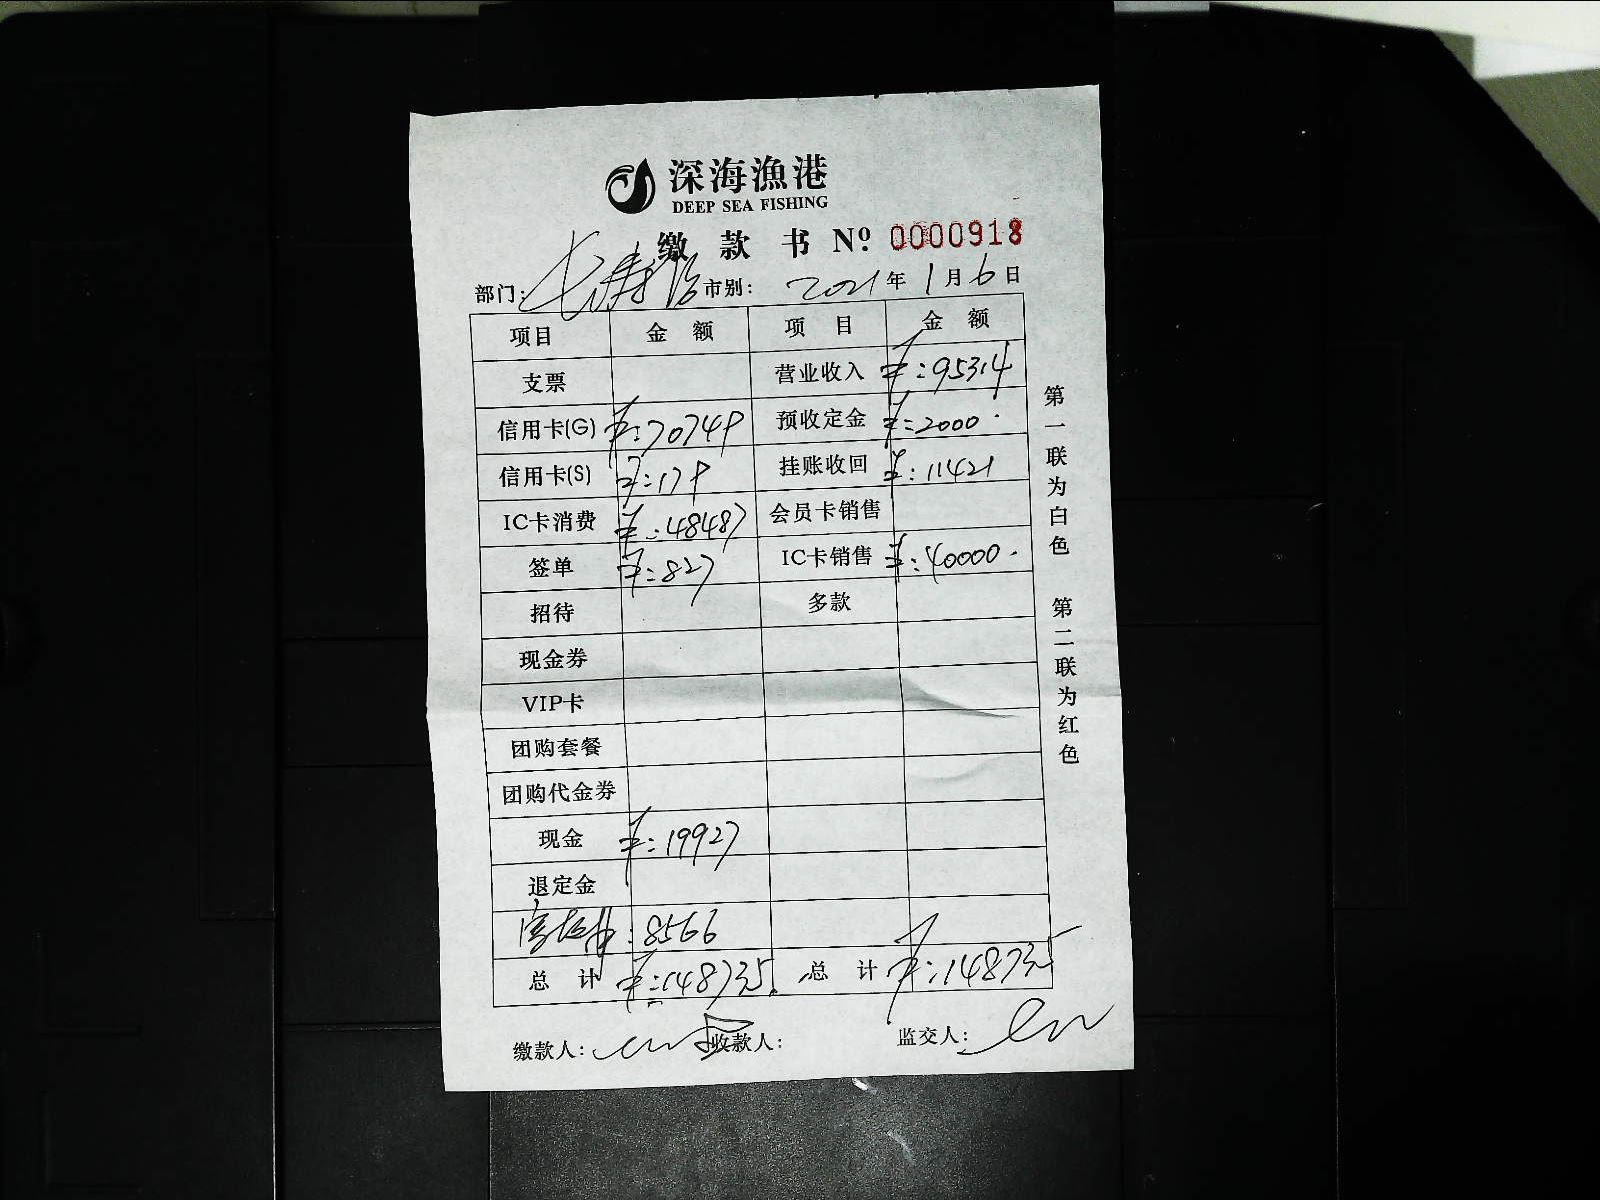 深海渔港
DEEP SEA FISHING
缴款书 Nº 0000918
部门: 市别: 2021年1月6日
项目 金额 项目 金额
支票 营业收入 ¥:95314
信用卡(G) ¥:70749 预收定金 ¥:2000.
信用卡(S) ¥:179 挂账收回 ¥:11421
IC卡消费 ¥:48487 会员卡销售
签单 ¥:827 IC卡销售 ¥:40000.
招待 多款
现金券
VIP卡
团购套餐
团购代金券
现金 ¥:19927
退定金
:8566
总计 ¥:148735. 总计 ¥:148735
缴款人: 收款人: 监交人:
第一联为白色 第二联为红色